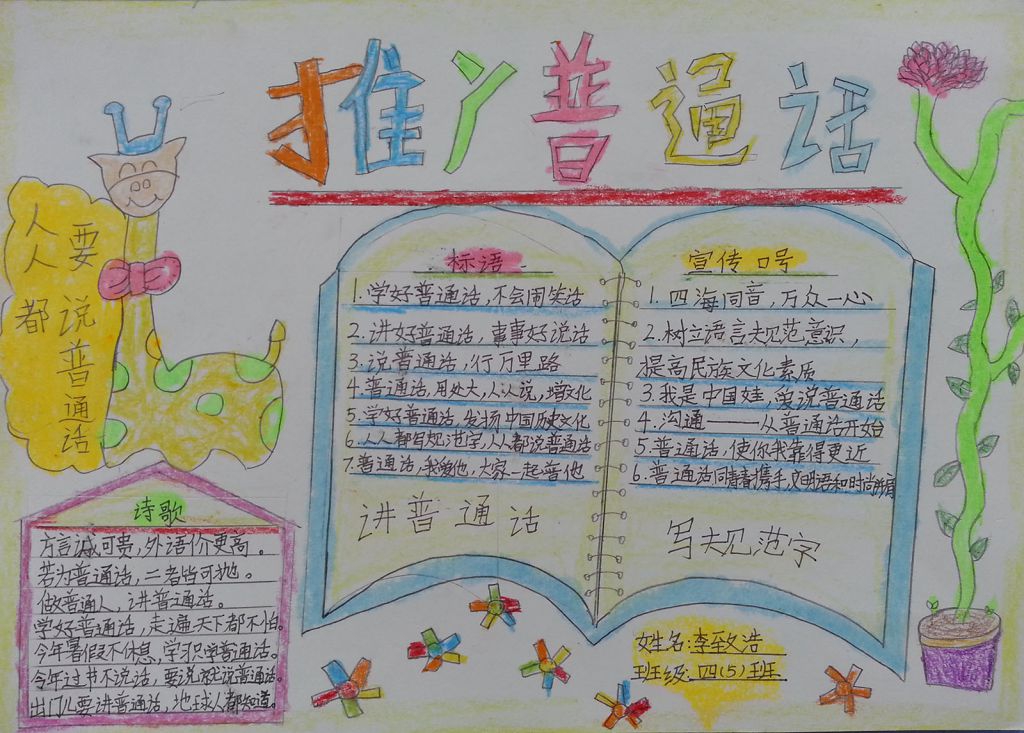 推广普通话
人人都
要说普通话
标语
1.学好普通话,不会闹笑话
2.讲好普通话,事事好说话
3.说普通话,行万里路
4.普通话,用处大,人人说,增文化
5.学好普通话,发扬中国历史文化
6.人人都写规范字,人人都说普通话
7.普通话,我爱他,大家一起普他
讲普通话
宣传口号
1.四海同音,万众一心
2.树立语言规范意识,
提高民族文化素质
3.我是中国娃,爱说普通话
4.沟通——从普通话开始
5.普通话,使你我靠得更近
6.普通话同青春携手,文明语和时尚并肩
写规范字
诗歌
方言诚可贵,外语价更高。
若为普通话,二者皆可抛。
做普通人,讲普通话。
学好普通话,走遍天下都不怕。
今年暑假不休息,学习学普通话。
今年过节不说话,要说就说普通话。
出门儿要讲普通话,地球人都知道。
姓名:李致浩
班级:四(5)班